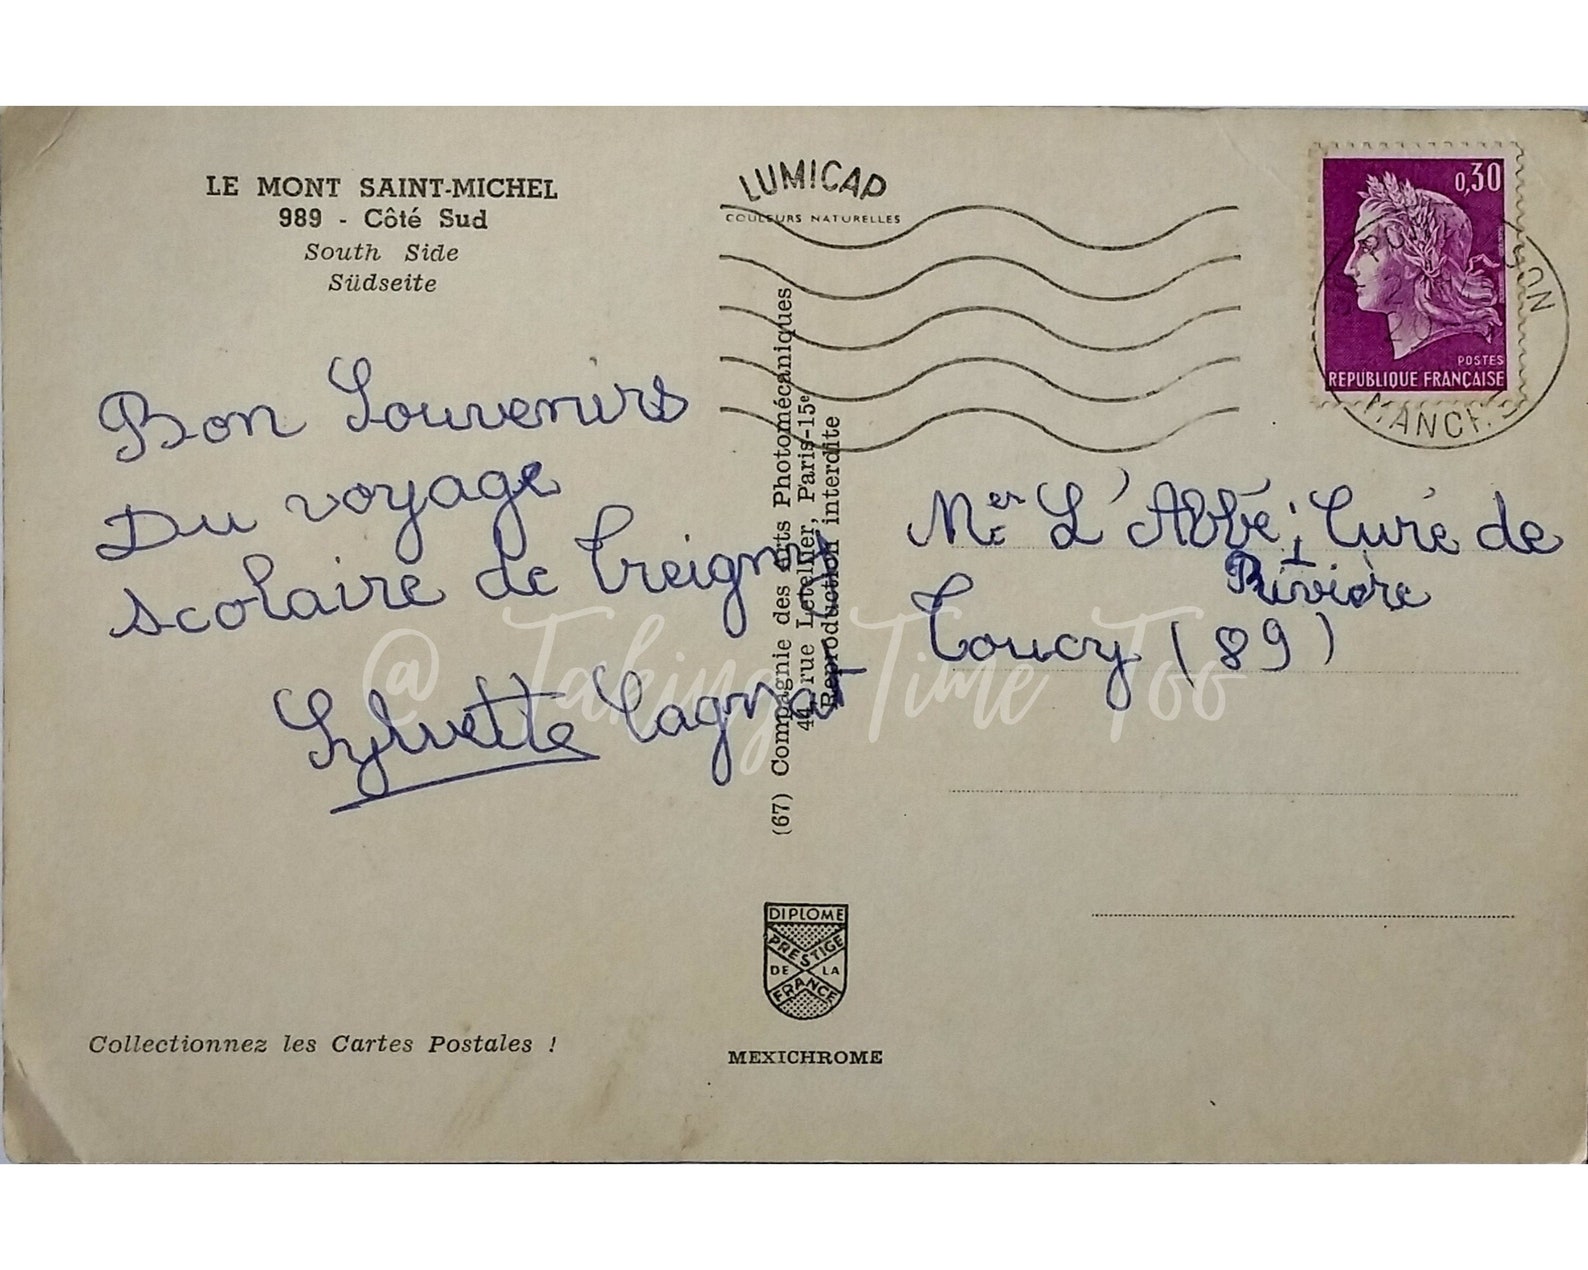 LE MONT SAINT-MICHEL
989 - Côté Sud
South Side
Südseite
Bon Souvenirs
Du voyage
scolaire de Treigny
Sylvette Cagnat
Collectionnez les Cartes Postales !
LUMICAP
COULEURS NATURELLES
(67) Compagnie des Arts Photomécaniques
44, rue Letellier, Paris-15e
Reproduction interdite
DIPLOME
PRESTIGE
DE LA
FRANCE
MEXICHROME
0,30
POSTES
REPUBLIQUE FRANÇAISE
MANCHE
Mer L'Abbé, Curé de
Rivière
Toucy (89)
@ Taking Time Too